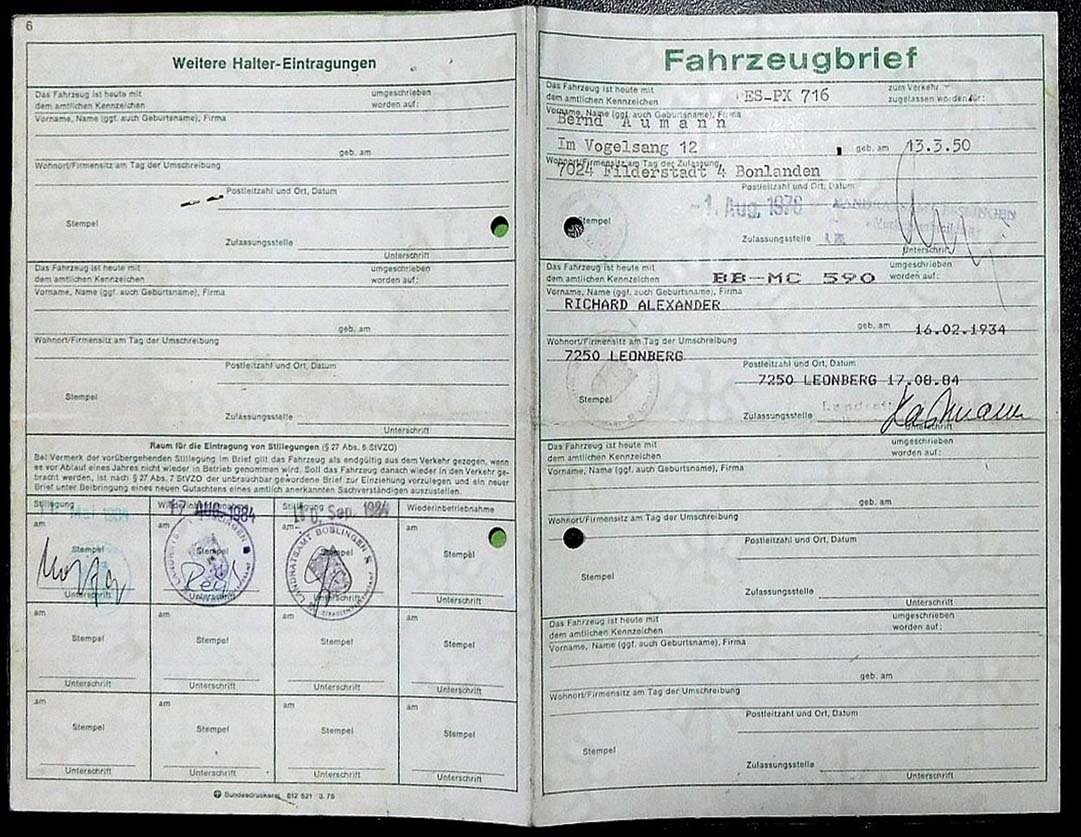 6
Weitere Halter-Eintragungen
Das Fahrzeug ist heute mit umgeschrieben
dem amtlichen Kennzeichen worden auf:
Vorname, Name (ggf. auch Geburtsname), Firma
geb. am
Wohnort/Firmensitz am Tag der Umschreibung
Postleitzahl und Ort, Datum
Stempel
Zulassungsstelle
Unterschrift
Das Fahrzeug ist heute mit umgeschrieben
dem amtlichen Kennzeichen worden auf:
Vorname, Name (ggf. auch Geburtsname), Firma
geb. am
Wohnort/Firmensitz am Tag der Umschreibung
Postleitzahl und Ort, Datum
Stempel
Zulassungsstelle
Unterschrift
Raum für die Eintragung von Stillegungen (§ 27 Abs. 6 StVZO)
Bei Vermerk der vorübergehenden Stillegung im Brief gilt das Fahrzeug als endgültig aus dem Verkehr gezogen, wenn
es vor Ablauf eines Jahres nicht wieder in Betrieb genommen wird. Soll das Fahrzeug danach wieder in den Verkehr ge-
bracht werden, ist nach § 27 Abs. 7 StVZO der unbrauchbar gewordene Brief zur Einziehung vorzulegen und ein neuer
Brief unter Beibringung eines neuen Gutachtens eines amtlich anerkannten Sachverständigen auszustellen.
Stillegung Wiederinbetriebnahme Stillegung Wiederinbetriebnahme
Mai 1984 17. AUG. 1984 Sep. 1984
am am am am
Stempel Stempel Stempel Stempel
LANDRATSAMT BÖBLINGEN
Unterschrift Unterschrift Unterschrift Unterschrift
am am am am
Stempel Stempel Stempel Stempel
Unterschrift Unterschrift Unterschrift Unterschrift
am am am am
Stempel Stempel Stempel Stempel
Unterschrift Unterschrift Unterschrift Unterschrift
Bundesdruckerei 612 521 3.75
Fahrzeugbrief
Das Fahrzeug ist heute mit zum Verkehr
dem amtlichen Kennzeichen ES-PX 716 zugelassen worden für:
Vorname, Name (ggf. auch Geburtsname), Firma
Bernd Aumann
Im Vogelsang 12 geb. am 13.3.50
Wohnort/Firmensitz am Tag der Zulassung
7024 Filderstadt 4 Bonlanden
Postleitzahl und Ort, Datum
-1. Aug. 1978
Stempel
Zulassungsstelle
Unterschrift
Das Fahrzeug ist heute mit umgeschrieben
dem amtlichen Kennzeichen BB-MC 590 worden auf:
Vorname, Name (ggf. auch Geburtsname), Firma
RICHARD ALEXANDER
geb. am 16.02.1934
Wohnort/Firmensitz am Tag der Umschreibung
7250 LEONBERG
Postleitzahl und Ort, Datum
7250 LEONBERG 17.08.84
Stempel
Zulassungsstelle
Unterschrift
Das Fahrzeug ist heute mit umgeschrieben
dem amtlichen Kennzeichen worden auf:
Vorname, Name (ggf. auch Geburtsname), Firma
geb. am
Wohnort/Firmensitz am Tag der Umschreibung
Postleitzahl und Ort, Datum
Stempel
Zulassungsstelle
Unterschrift
Das Fahrzeug ist heute mit umgeschrieben
dem amtlichen Kennzeichen worden auf:
Vorname, Name (ggf. auch Geburtsname), Firma
geb. am
Wohnort/Firmensitz am Tag der Umschreibung
Postleitzahl und Ort, Datum
Stempel
Zulassungsstelle
Unterschrift